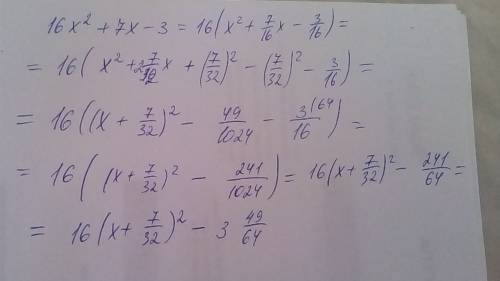 16x² + 7x - 3 = 16(x² + 7/16 x - 3/16) =
= 16( x² + 2 7/32 x + (7/32)² - (7/32)² - 3/16) =
= 16((x + 7/32)² - 49/1024 - 3^(64/16) =
= 16( (x + 7/32)² - 241/1024) = 16(x + 7/32)² - 241/64 =
= 16(x + 7/32)² - 3 49/64